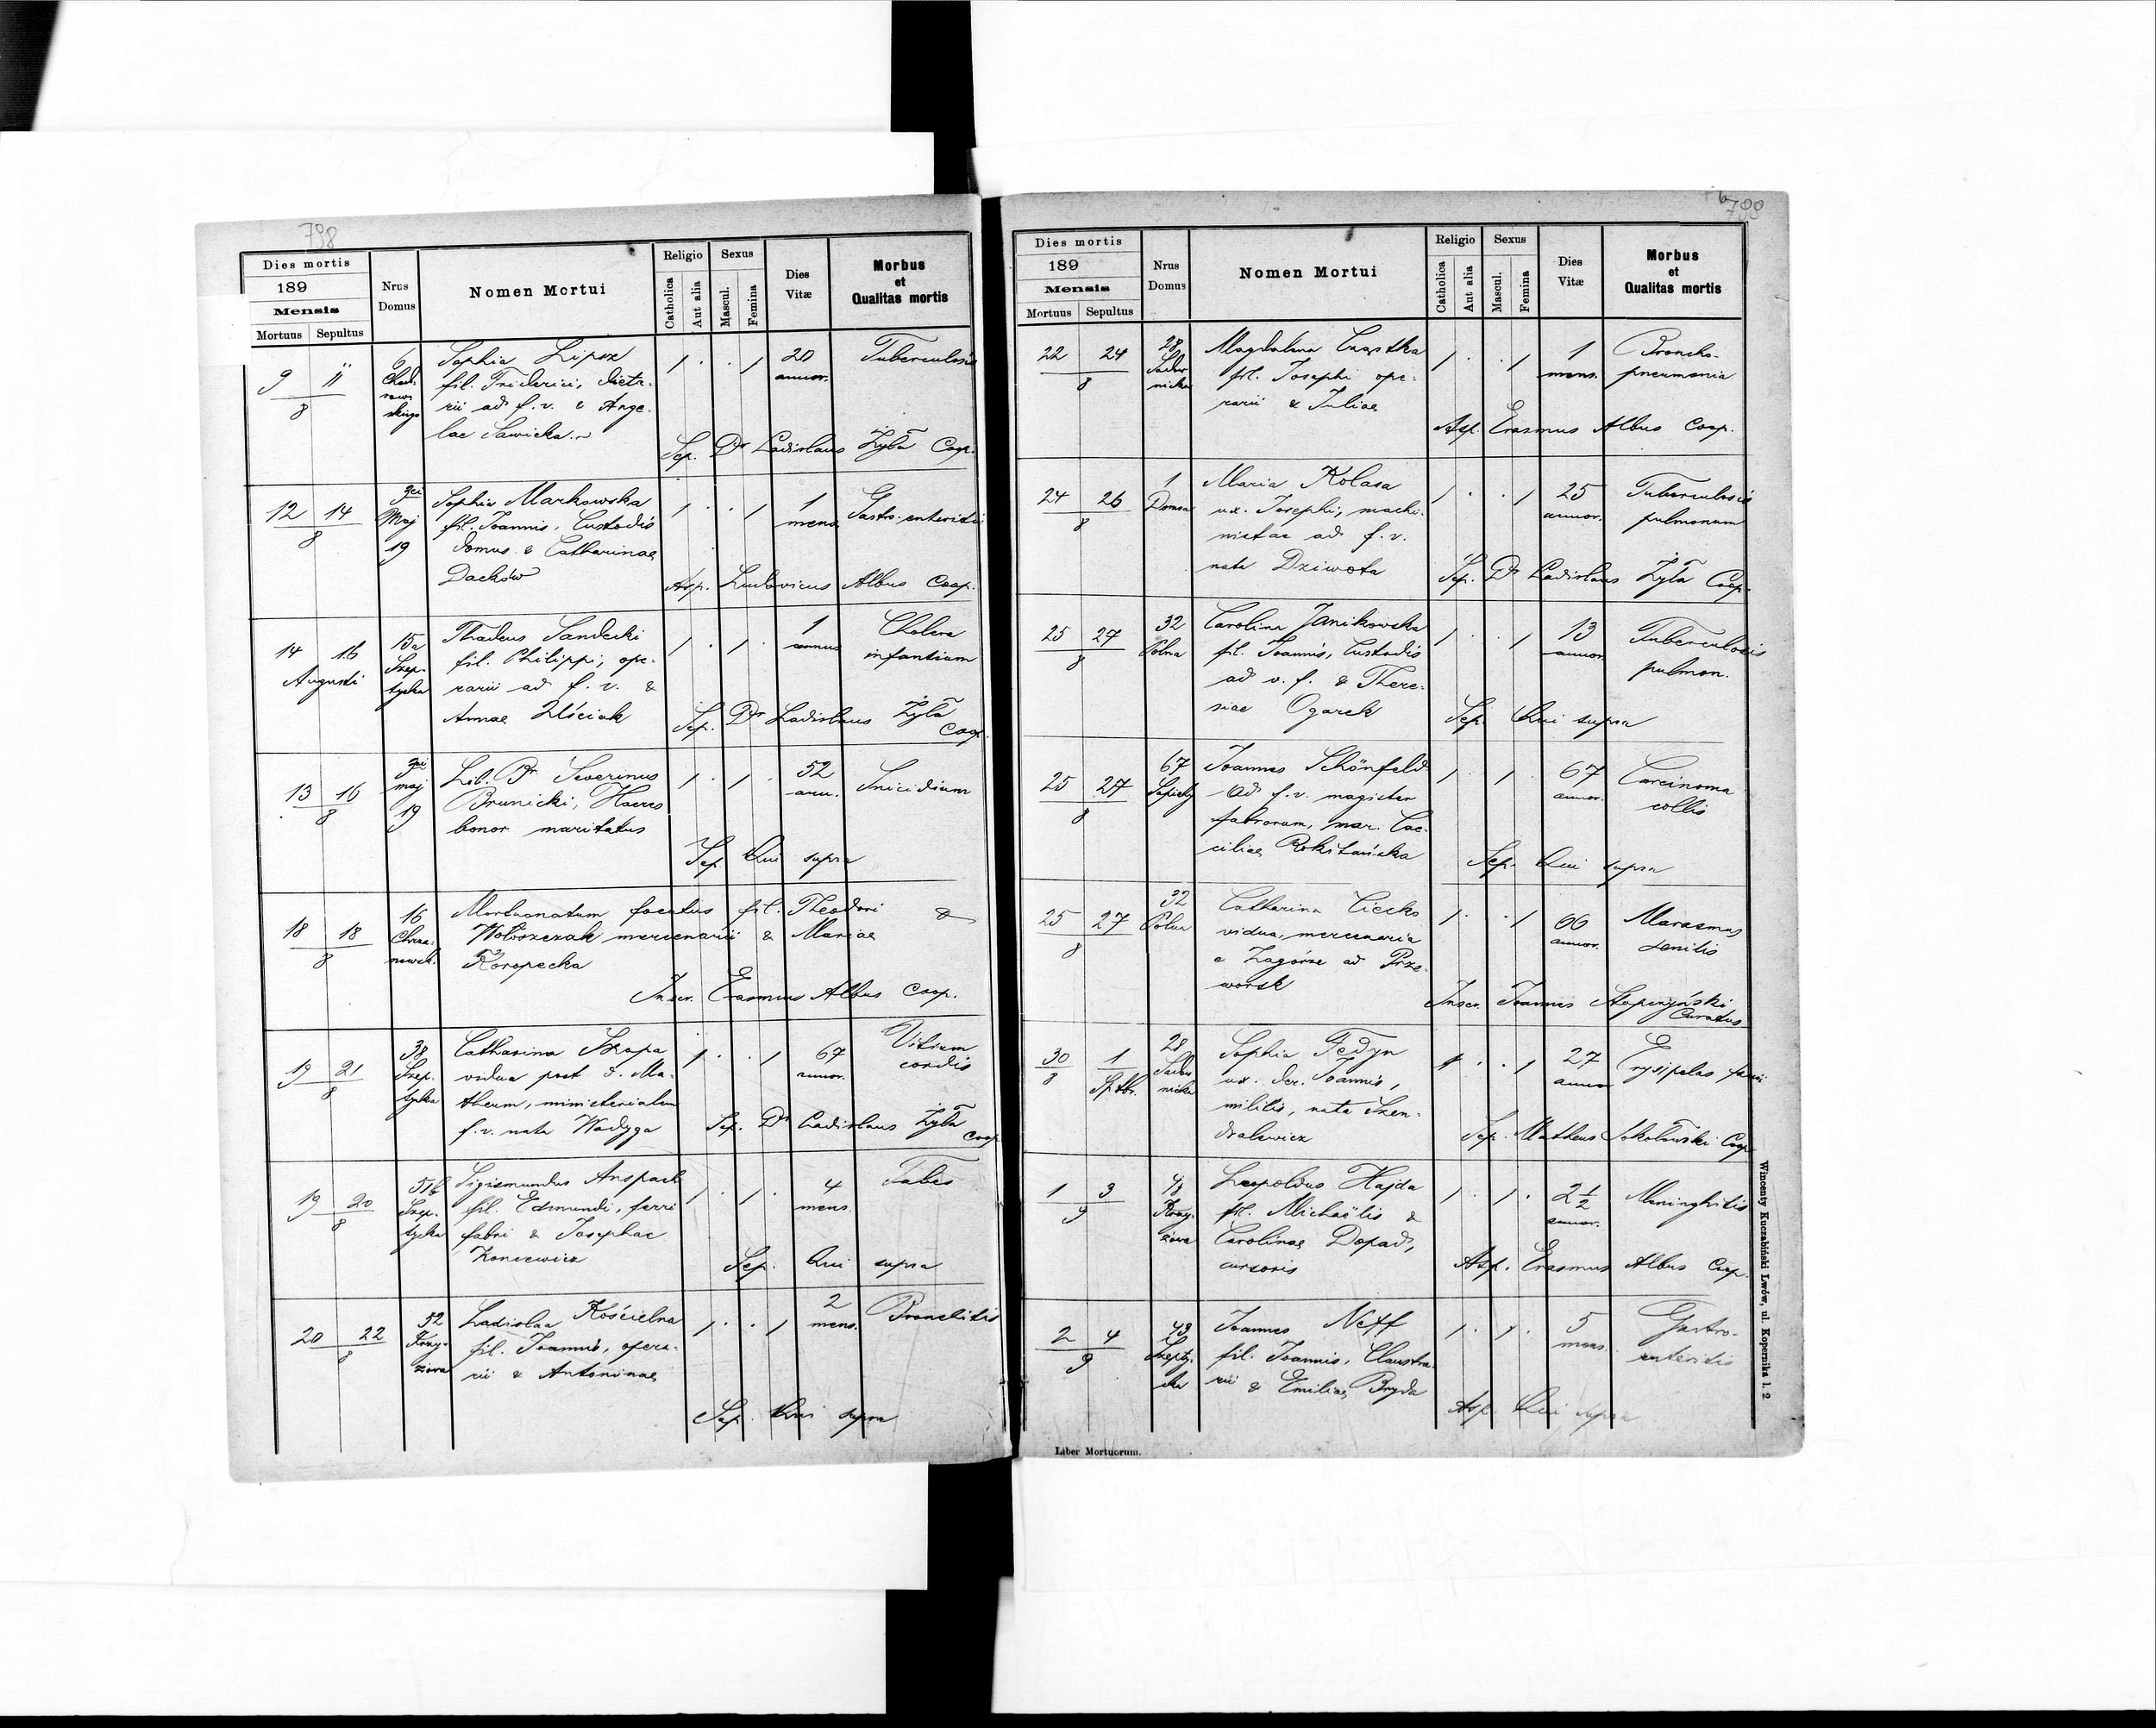 798
Dies mortis
189
Mensis
Mortuus Sepultus
Nrus Domus
Nomen Mortui
Religio
Catholica Aut alia
Sexus
Mascul. Femina
Dies Vitæ
Morbus et Qualitas mortis
9 11 6 Sophia Lipsz 1 . . 1 20 Tuberculosis
8 fil. Friderici, dieta- annor.
rii ad f. v. & Ange-
skiego lae Sawicka
Sep. Dr Ladislaus Żyła Coop.
12 14 3ci Sophia Markowska 1 . . 1 1 Gastro-enteritis
8 Maj fil. Joannis, Custodis mens.
19 domus & Catharinae
Daców
Asp. Ludovicus Albus Coop.
14 16 15a Thadeus Sandecki 1 . 1 . 1 Cholera
Augusti Szep- fil. Philippi, ope- annus infantium
tycka rarii ad f. v. &
Annae Uściak
Sep. Dr Ladislaus Żyła
Coop.
13 16 3ci Lib. Br Severinus 1 . 1 . 52 Suicidium
8 maj Brunicki, Haeres ann.
19 bonor maritatus
Sep. Qui supra
18 18 16 Mortuonatum foetus fil. Theodori &
8 Wołoszczak mercenarii & Mariae
Koropecka
Inscr. Erasmus Albus Coop.
19 21 38 Catharina Szapa 1 . . 1 67 Vitium
8 Szep- vidua post d. Ma- annor. cordis
tycka theum, ministerialem
f. v. nata Wadyga
Sep. Dr Ladislaus Żyła
Coop
19 20 51b Sigismundus Anspach 1 . 1 . 4 Tabes
8 Szep- fil. Edmundi, ferri mens.
tycka fabri & Josephae
Zoncewicz
Sep. Qui supra
20 22 52 Ladislaa Kościelna 1 . . 1 2 Bronchitis
8 Krzy- fil. Joannis, opera- mens.
żowa rii & Antoninae
Sep. Qui supra
799
Dies mortis
189
Mensis
Mortuus Sepultus
Nrus Domus
Nomen Mortui
Religio
Catholica Aut alia
Sexus
Mascul. Femina
Dies Vitæ
Morbus et Qualitas mortis
22 24 28 Magdalena Cząstka 1 . . 1 1 Broncho-
8 Sador fil. Josephi ope- mens. pneumonia
nicka rarii & Juliae
Asp. Erasmus Albus Coop.
24 26 1 Maria Kolasa 1 . . 1 25 Tuberculosis
8 Domsa ux. Josephi, machi- annor. pulmonum
nistae ad f. v.
nata Dziwota
Sep. Dr Ladislaus Żyła Coop.
25 27 32 Carolina Janikowska 1 . . 1 13 Tuberculosis
8 Polna fil. Joannis, Custodis annor. pulmon.
ad v. f. & There-
siae Ogarek
Sep. Qui supra
25 27 67 Joannes Schönfeld 1 . 1 . 67 Carcinoma
8 Sapiehy ad f. v. magister annor. collis
fabrorum, mar. Cae-
ciliae Rokitańska
Sep. Qui supra
25 27 32 Catharina Ciecko 1 . . 1 66 Marasmus
8 Polna vidua, mercenaria annor. senilis
e Zagórze ad Prze-
worsk
Inscr. Joannes
Curatus
30 1 28 Sophia Fedyn 1 . . 1 27 Erysipelas faciei
8 Sptbr. Sador ux. der. Joannis, annor
nicka militis, nata Szen-
dralewicz
Sep. Matheus Sokołowski Coop
1 3 48 Leopoldus Hajda 1 . 1 . 2 1/2 Meninghitis
9 Krzy- fil. Michaëlis & annor.
żowa Carolinae Dopad,
cursoris
Asp. Erasmus Albus Coop.
2 4 43 Joannes Neff 1 . 1 . 5 Gastro-
9 Szepty- fil. Joannis, Claustra- mens. enteritis
cka rii & Emiliae Bryda
Asp. Qui supra
Liber Mortuorum.
Wincenty Kuczabiński Lwów, ul. Kopernika l. 2